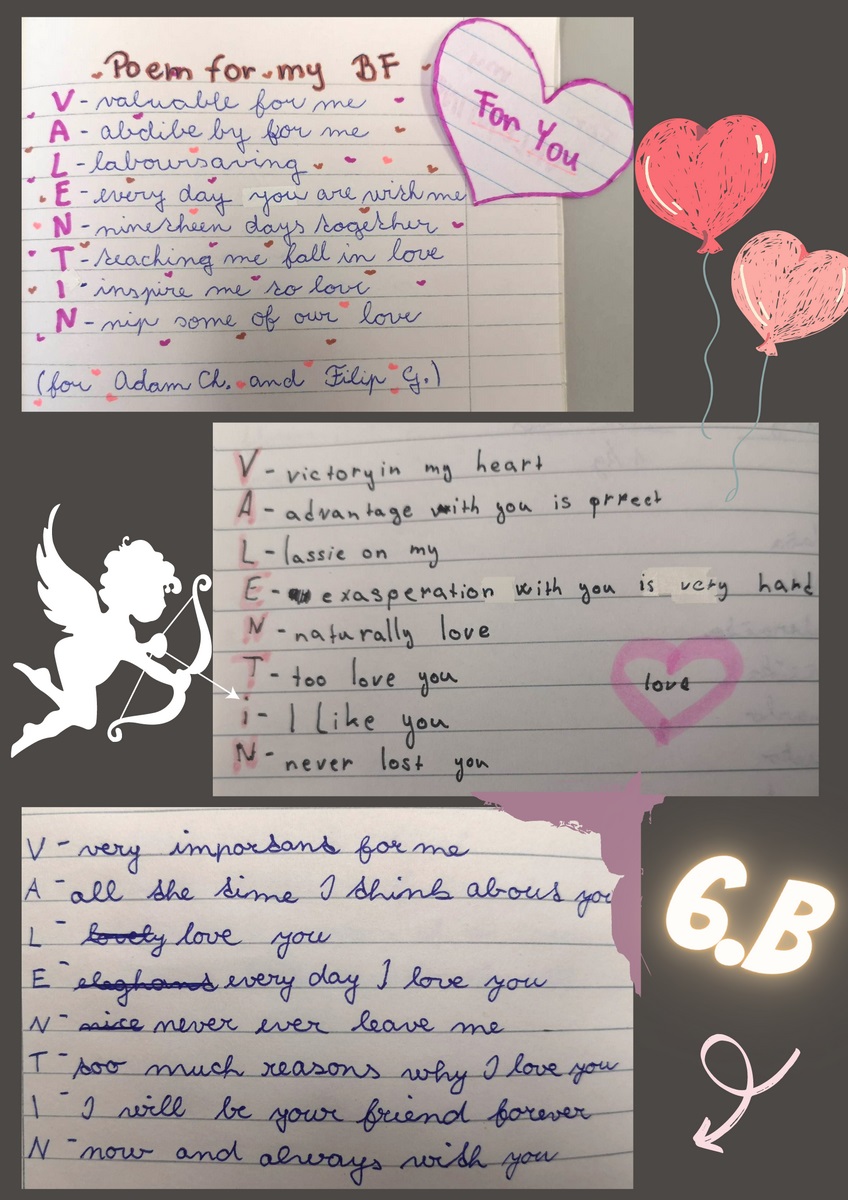 Poem for my BF
For You
V - valuable for me
A - abdibe by for me
L - laboursaving
E - every day you are wish me
N - ninetheen days together
T - teaching me fall in love
I - inspire me to love
N - nip some of our love
(for Adam Ch. and Filip G.)
V - victory in my heart
A - advantage with you is prrect
L - lassie on my
E - exasperation with you is very hard
N - naturally love
T - too love you
i - I Like you
N - never lost you
love
V - very important for me
A - all the time I think about you
L - lovely love you
E - eleghant every day I love you
N - nice never ever leave me
T - too much reasons why I love you
I - I will be your friend forever
N - now and always with you
6.B